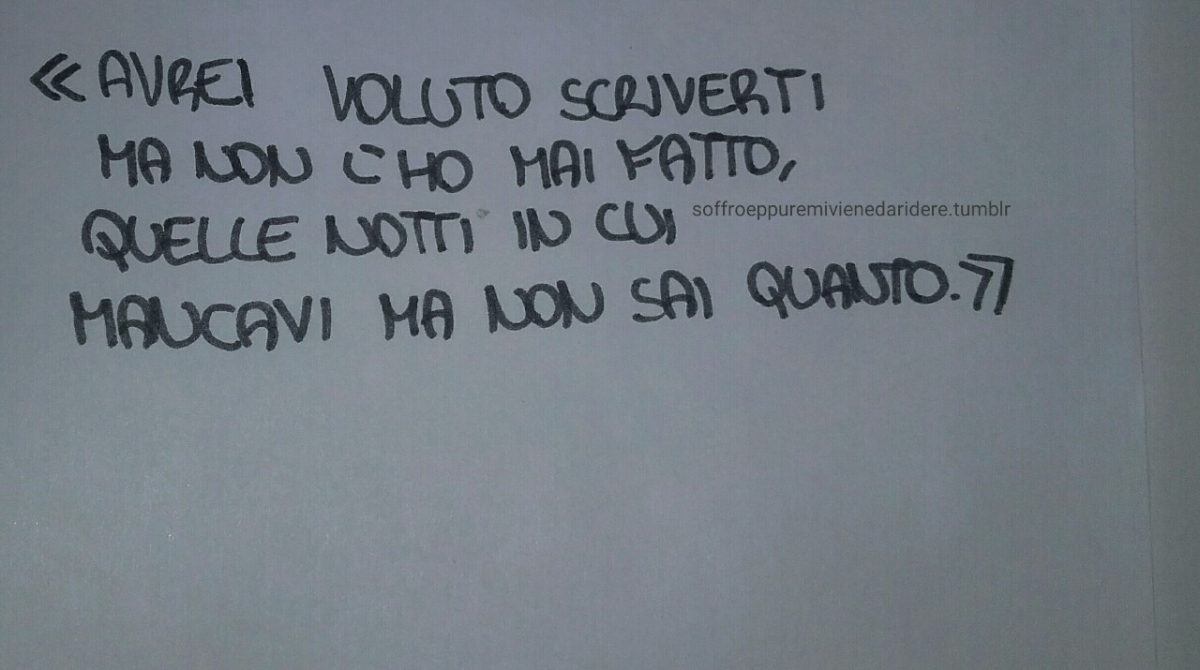 «AVREI VOLUTO SCRIVERTI
MA NON L'HO MAI FATTO,
QUELLE NOTTI IN CUI
soffroeppuremivienedaridere.tumblr
MANCAVI MA NON SAI QUANTO.»